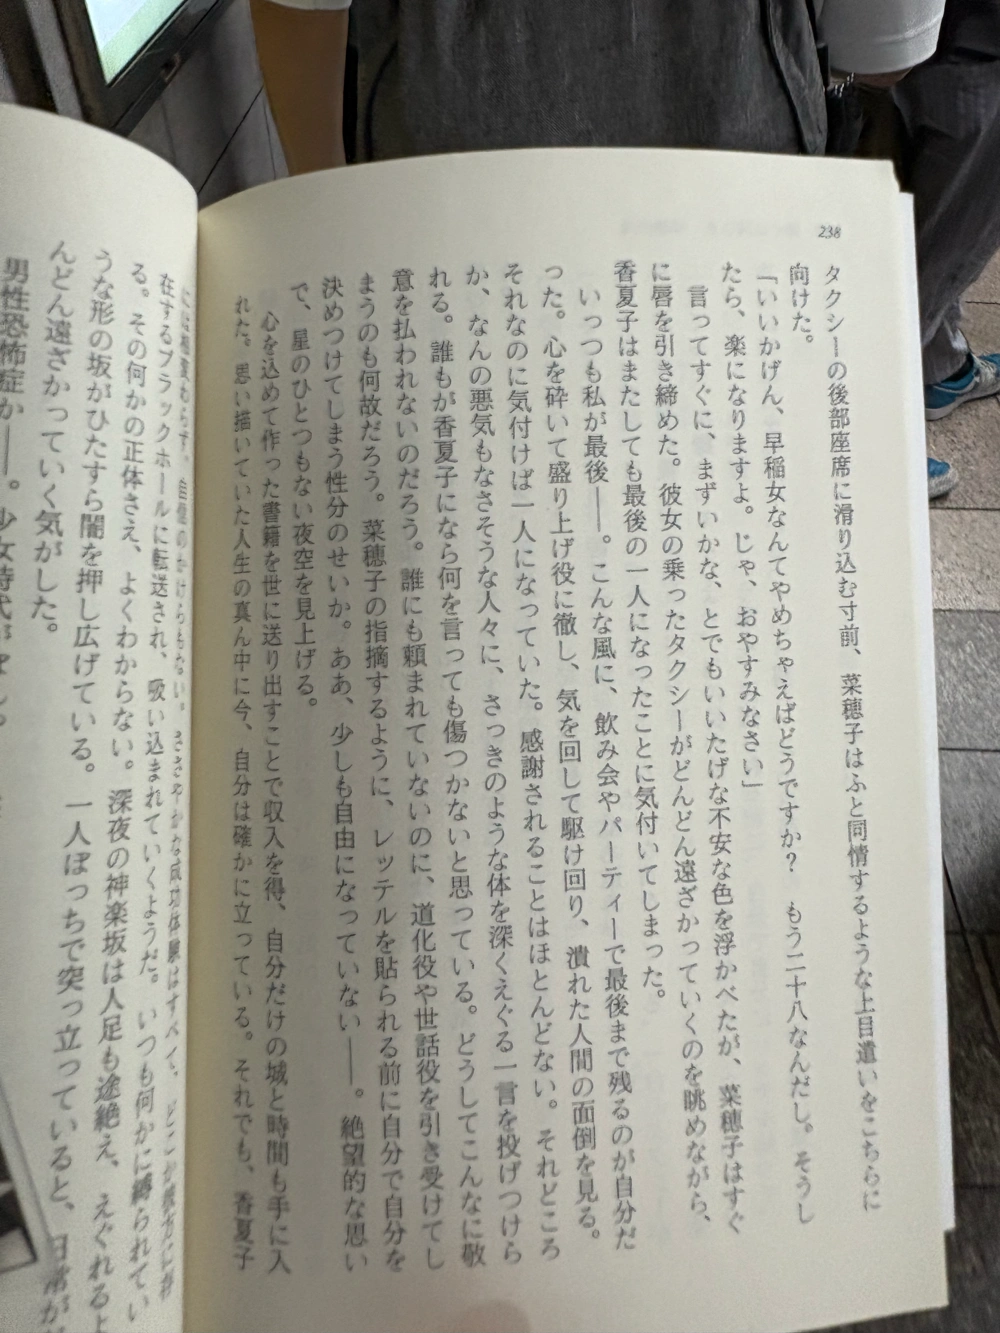 238
タクシーの後部座席に滑り込む寸前、菜穂子はふと同情するような上目遣いをこちらに
向けた。
「いいかげん、早稲女なんてやめちゃえばどうですか？　もう二十八なんだし。そうし
たら、楽になりますよ。じゃ、おやすみなさい」
　言ってすぐに、まずいかな、とでもいいたげな不安な色を浮かべたが、菜穂子はすぐ
に唇を引き締めた。彼女の乗ったタクシーがどんどん遠ざかっていくのを眺めながら、
香夏子はまたしても最後の一人になったことに気付いてしまった。
　いっつも私が最後――。こんな風に、飲み会やパーティーで最後まで残るのが自分だ
った。心を砕いて盛り上げ役に徹し、気を回して駆け回り、潰れた人間の面倒を見る。
それなのに気付けば一人になっていた。感謝されることはほとんどない。それどころ
か、なんの悪気もなさそうな人々に、さっきのような体を深くえぐる一言を投げつけら
れる。誰もが香夏子になら何を言っても傷つかないと思っている。どうしてこんなに敬
意を払われないのだろう。誰にも頼まれていないのに、道化役や世話役を引き受けてし
まうのも何故だろう。菜穂子の指摘するように、レッテルを貼られる前に自分で自分を
決めつけてしまう性分のせいか。ああ、少しも自由になっていない――。絶望的な思い
で、星のひとつもない夜空を見上げる。
　心を込めて作った書籍を世に送り出すことで収入を得、自分だけの城と時間も手に入
れた。思い描いていた人生の真ん中に今、自分は確かに立っている。それでも、香夏子
在するブラックホールに転送され、吸い込まれていくようだ。いつも何かに縛られてい
る。その何かの正体さえ、よくわからない。深夜の神楽坂は人足も途絶え、えぐれるよ
うな形の坂がひたすら闇を押し広げている。一人ぼっちで突っ立っていると、日常が
んどん遠ざかっていく気がした。
男性恐怖症か――。少女時代が